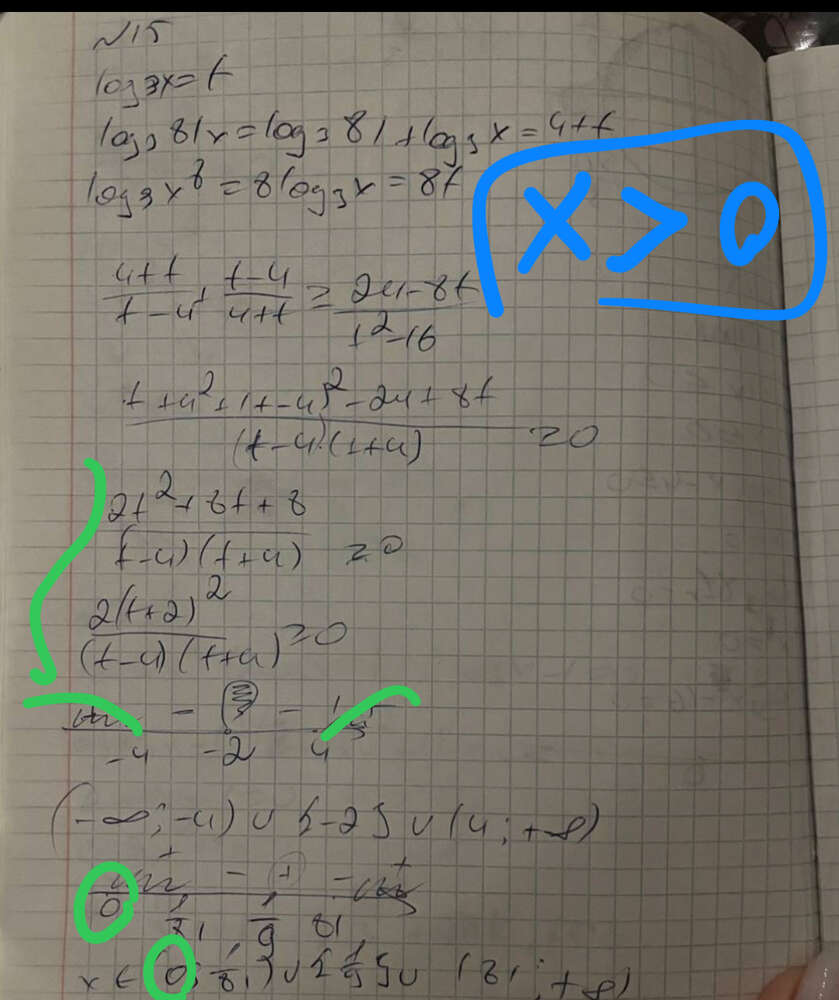 №15
log₃x = t
log₃81x = log₃81 + log₃x = 4+t
log₃x⁸ = 8log₃x = 8t
x > 0
(4+t)/(t-4) + (t-4)/(4+t) ≥ (24-8t)/(t²-16)
(t+4)²+(t-4)²-24+8t / (t-4)(t+4) ≥ 0
(2t²+8t+8)/((t-4)(t+4)) ≥ 0
2(t+2)²/((t-4)(t+4)) ≥ 0
- - +
-4 -2 4
(-∞; -4) ∪ {-2} ∪ (4; +∞)
+ - + - +
0 1/81 1/9 81
x ∈ (0; 1/81) ∪ {1/9} ∪ (81; +∞)